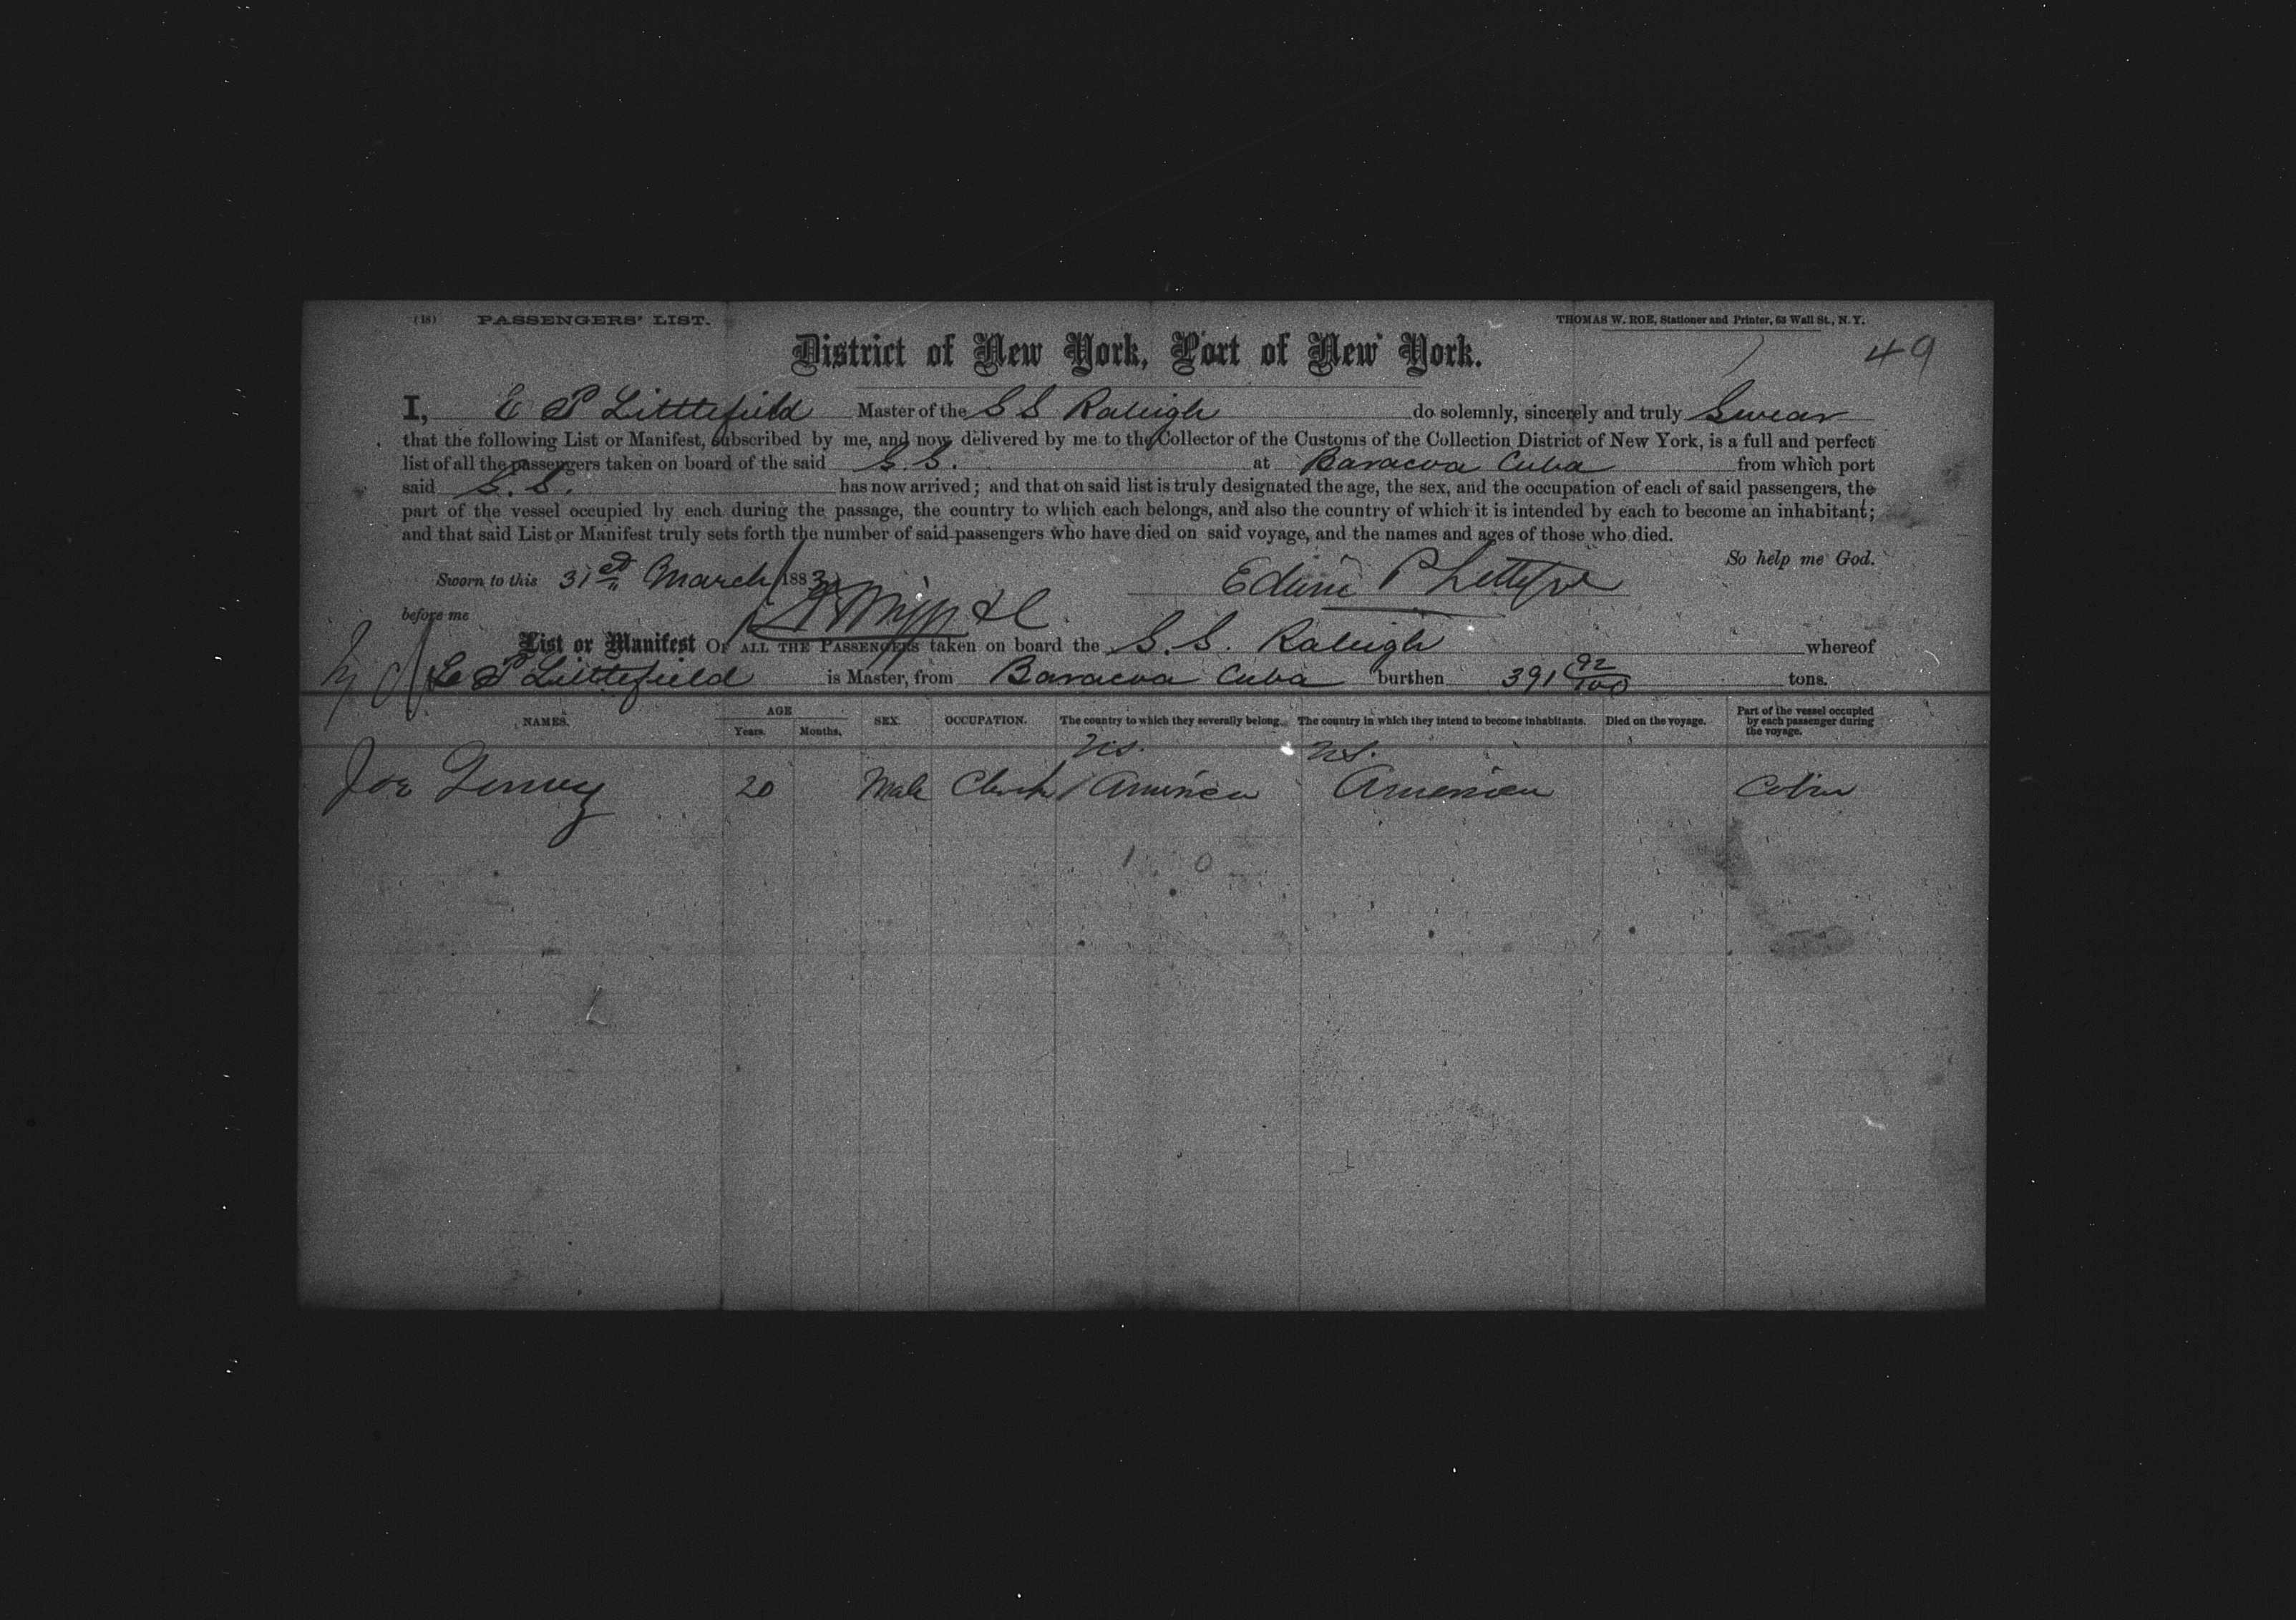 (18) PASSENGERS' LIST. THOMAS W. ROE, Stationer and Printer, 63 Wall St., N.Y.
49
District of New York, Port of New York.
I, E P Littlefield Master of the S S Raleigh do solemnly, sincerely and truly Swear
that the following List or Manifest, subscribed by me, and now delivered by me to the Collector of the Customs of the Collection District of New York, is a full and perfect
list of all the passengers taken on board of the said S.S. at Baracoa Cuba from which port
said S.S. has now arrived; and that on said list is truly designated the age, the sex, and the occupation of each of said passengers, the
part of the vessel occupied by each during the passage, the country to which each belongs, and also the country of which it is intended by each to become an inhabitant;
and that said List or Manifest truly sets forth the number of said passengers who have died on said voyage, and the names and ages of those who died.
So help me God.
Sworn to this 31st March 1883 Edwin P
before me
List or Manifest OF ALL THE PASSENGERS taken on board the S.S. Raleigh whereof
E P Littlefield is Master, from Baracoa Cuba burthen 391 92/100 tons.
NAMES. AGE Years. Months. SEX. OCCUPATION. The country to which they severally belong. The country in which they intend to become inhabitants. Died on the voyage. Part of the vessel occupied by each passenger during the voyage.
US. US.
Joe 20 Male Clerk America America Cabin
1 0